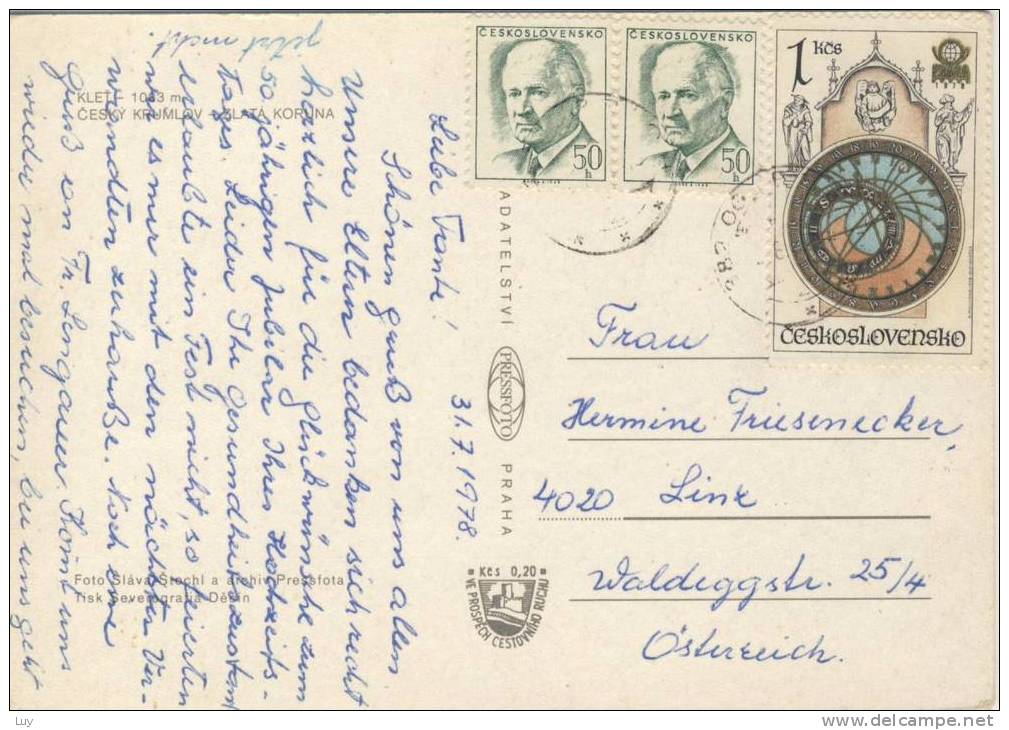 KLEŤ - 1083 m
ČESKÝ KRUMLOV - ZLATÁ KORUNA
31.7.1978.
Liebe Tante!
Schönen gruß von uns allen
Unsere Eltern bedanken sich recht
herzlich für die glückwünsche zum
50 jährigen Jubilar Ihres Hochzeits-
tages. Leider Ihr Gesundheitszustand
erlaubte ein Fest nicht, so feierten
wir es nur mit den nächsten Ver-
wandten zuhauße. Noch eine
Gruß von Fr. Lengauer. Komt uns
wieder mal besuchen, bei uns geht
jetzt nicht.
Foto Sláva Štochl a archiv Pressfota
Tisk Severografia Děčín
ADATELSTVÍ
PRESSFOTO
PRAHA
Kčs 0,20
VE PROSPĚCH CESTOVNÍHO RUCHU
ČESKOSLOVENSKO
50
h
ČESKOSLOVENSKO
50
h
1 Kčs
PRAGA
1978
ČESKOSLOVENSKO
Frau
Hermine Friesenecker,
4020 Linz
Waldeggstr. 25/4
Österreich.
Luy
www.delcampe.net